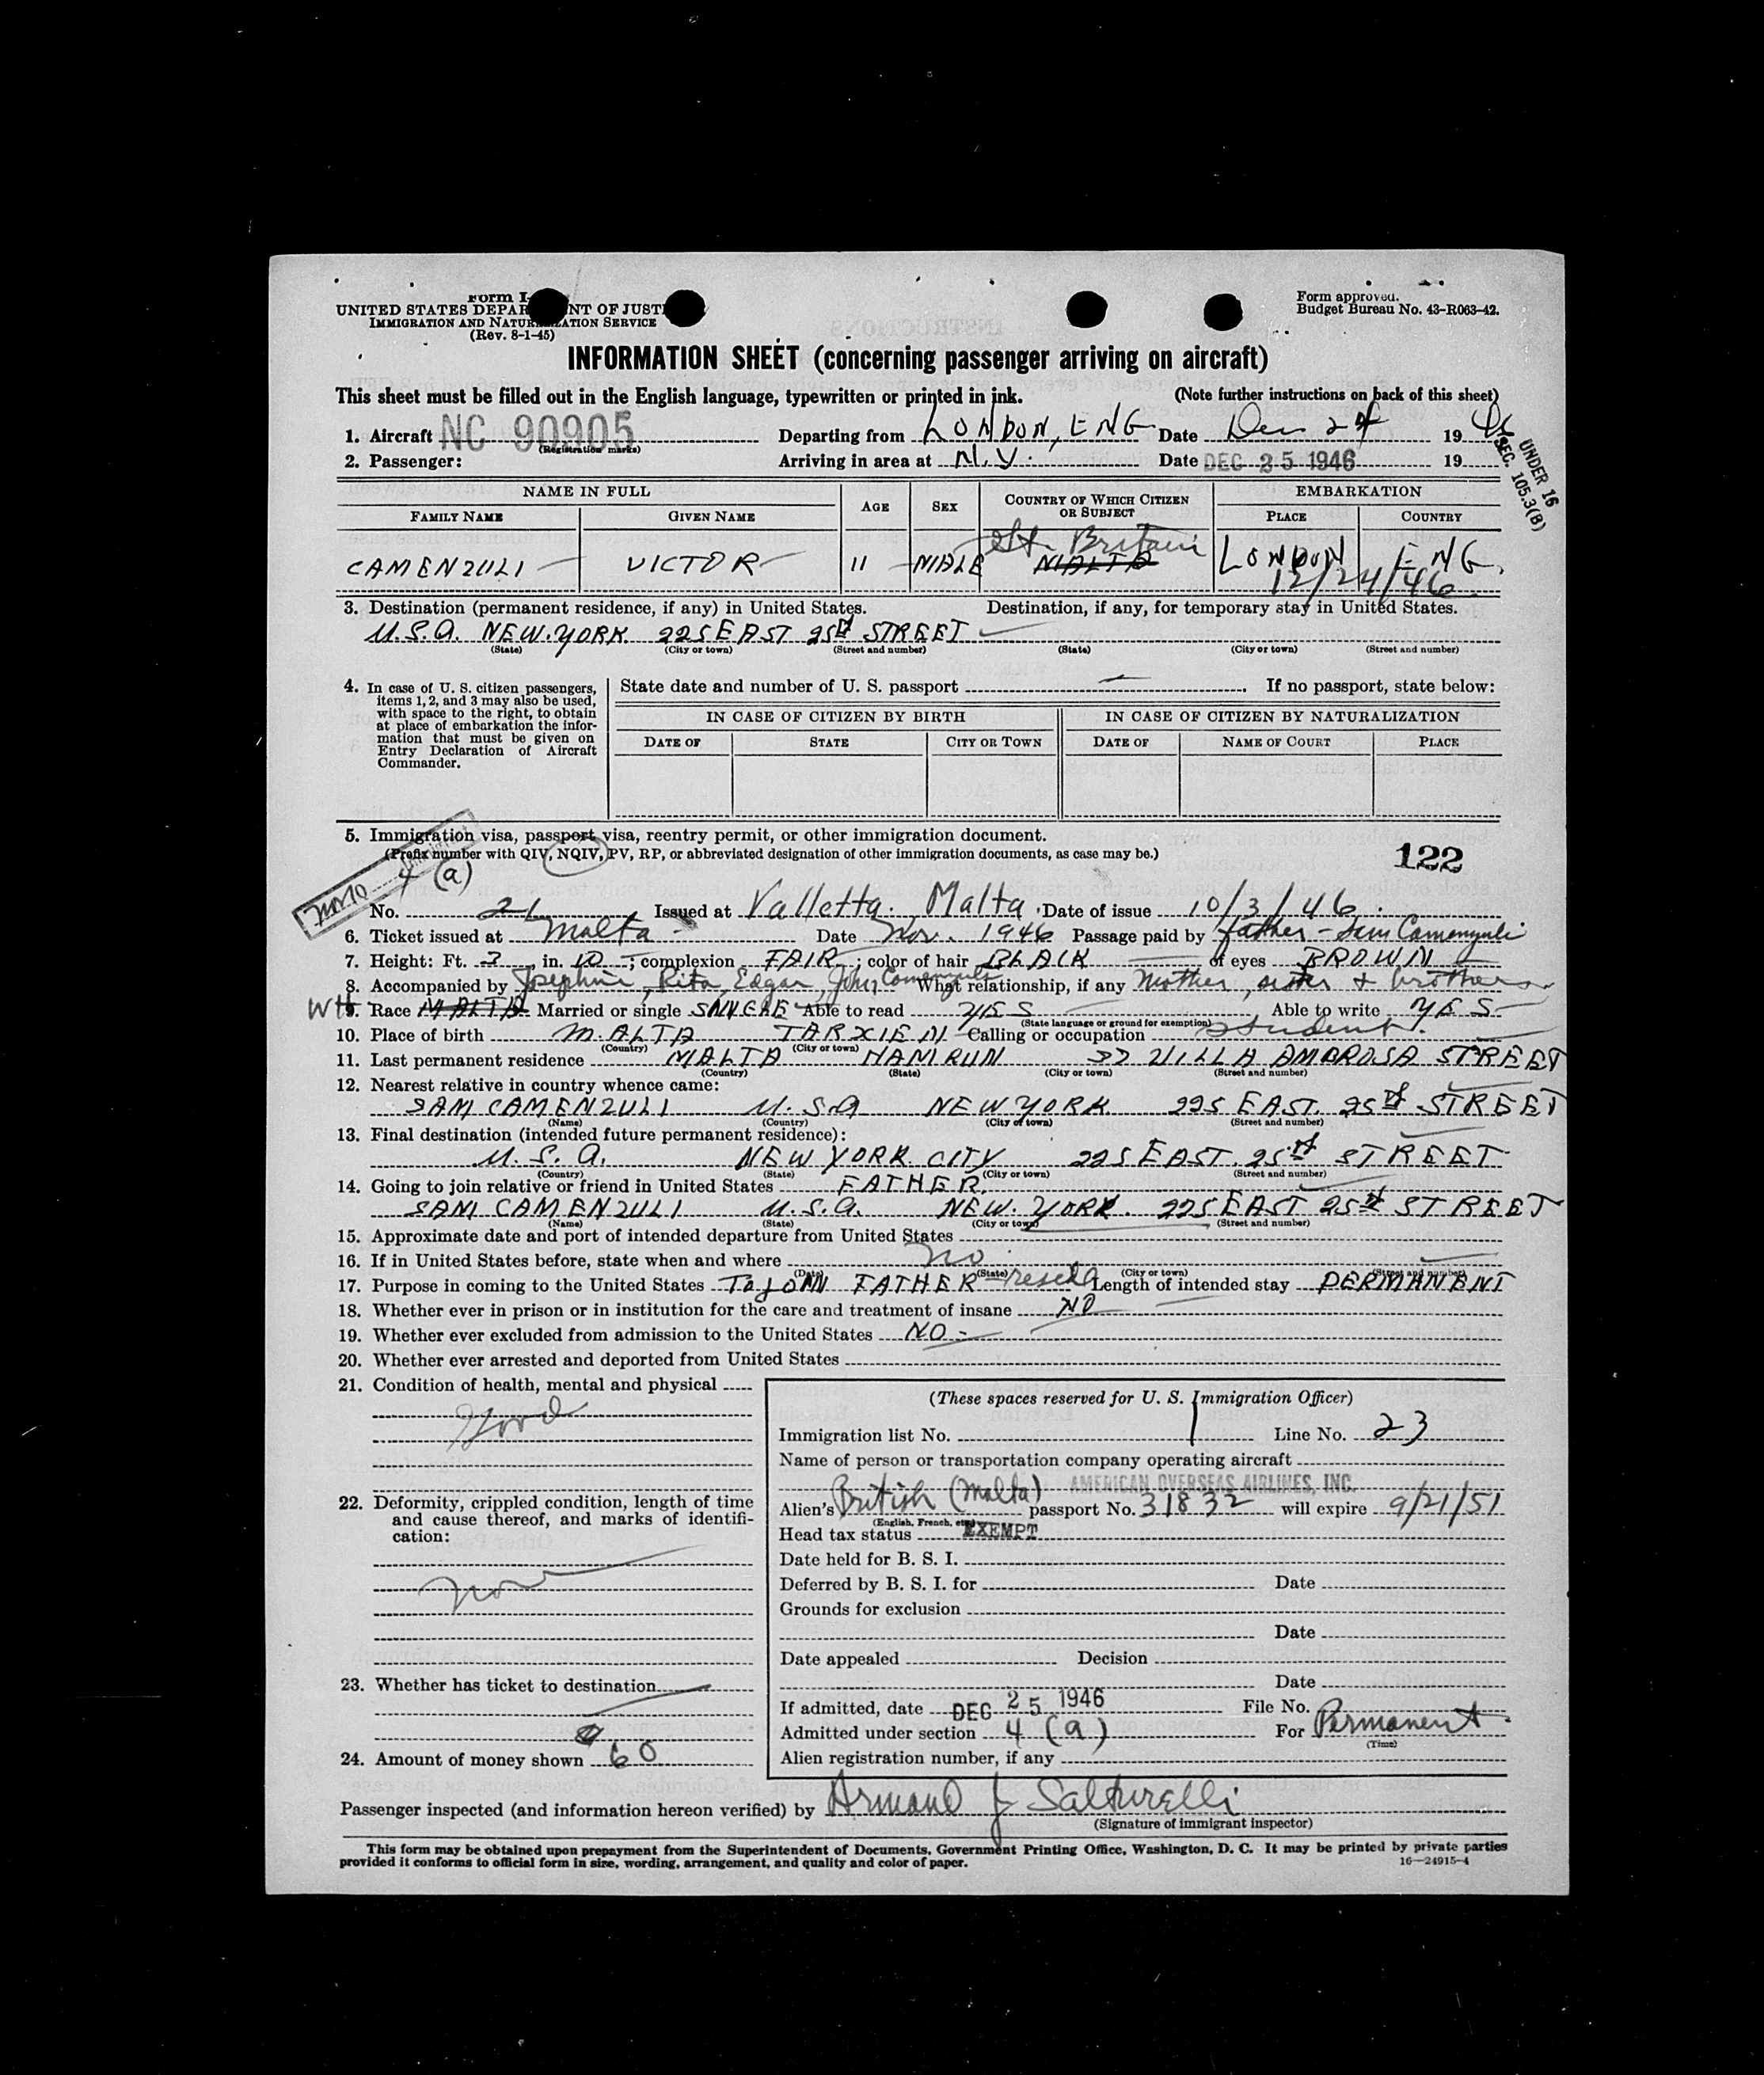 Form I-
UNITED STATES DEPAR NT OF JUST
IMMIGRATION AND NATUR ATION SERVICE
(Rev. 8-1-45)
Form approved.
Budget Bureau No. 43-R063-42.
INFORMATION SHEET (concerning passenger arriving on aircraft)
This sheet must be filled out in the English language, typewritten or printed in ink. (Note further instructions on back of this sheet)
1. Aircraft NC 90905 Departing from LONDON, ENG Date Dec 24 19 46
(Registration marks)
2. Passenger: Arriving in area at N.Y. Date DEC 25 1946 19
UNDER 16
SEC. 105.3(B)
NAME IN FULL AGE SEX COUNTRY OF WHICH CITIZEN OR SUBJECT EMBARKATION
FAMILY NAME GIVEN NAME PLACE COUNTRY
Gt. Britain
CAMENZULI VICTOR 11 MALE MALTA LONDON ENG.
12/24/46
3. Destination (permanent residence, if any) in United States. Destination, if any, for temporary stay in United States.
U.S.A. NEW.YORK 225 EAST 25th STREET
(State) (City or town) (Street and number) (State) (City or town) (Street and number)
4. In case of U. S. citizen passengers, items 1, 2, and 3 may also be used, with space to the right, to obtain at place of embarkation the information that must be given on Entry Declaration of Aircraft Commander.
State date and number of U. S. passport . If no passport, state below:
IN CASE OF CITIZEN BY BIRTH IN CASE OF CITIZEN BY NATURALIZATION
DATE OF STATE CITY OR TOWN DATE OF NAME OF COURT PLACE
5. Immigration visa, passport visa, reentry permit, or other immigration document.
(Prefix number with QIV, NQIV, PV, RP, or abbreviated designation of other immigration documents, as case may be.)
122
4 (a)
No. 21 Issued at Valletta, Malta Date of issue 10/3/46
6. Ticket issued at Malta Date Nov. 1946 Passage paid by father - Sam Camenzuli
7. Height: Ft. 3, in. 10; complexion FAIR; color of hair BLACK of eyes BROWN
8. Accompanied by Josephine, Rita, Edgar, John Camenzuli What relationship, if any Mother, sister & brothers
WH 9. Race MALTA Married or single SINGLE Able to read YES Able to write YES
(State language or ground for exemption)
10. Place of birth MALTA TARXIEN Calling or occupation Student
(Country) (City or town)
11. Last permanent residence MALTA HAMRUN 32 VILLA AMBROSA STREET
(Country) (State) (City or town) (Street and number)
12. Nearest relative in country whence came:
SAM CAMENZULI U.S.A NEW YORK 225 EAST. 25th STREET
(Name) (Country) (City of town) (Street and number)
13. Final destination (intended future permanent residence):
U.S.A. NEW YORK CITY 225 EAST. 25th STREET
(Country) (State) (City or town) (Street and number)
14. Going to join relative or friend in United States FATHER.
SAM CAMENZULI U.S.A. NEW.YORK. 225 EAST 25th STREET
(Name) (State) (City or town) (Street and number)
15. Approximate date and port of intended departure from United States
16. If in United States before, state when and where no
(Date) (State) (City or town) (Street and number)
17. Purpose in coming to the United States To JOIN FATHER Length of intended stay PERMANENT
18. Whether ever in prison or in institution for the care and treatment of insane NO
19. Whether ever excluded from admission to the United States NO
20. Whether ever arrested and deported from United States
21. Condition of health, mental and physical
Good
22. Deformity, crippled condition, length of time and cause thereof, and marks of identification:
None
23. Whether has ticket to destination
24. Amount of money shown 60
(These spaces reserved for U. S. Immigration Officer)
Immigration list No. 1 Line No. 23
Name of person or transportation company operating aircraft
AMERICAN OVERSEAS AIRLINES, INC.
Alien's British (Malta) passport No. 31832 will expire 9/21/51
(English, French, etc.)
Head tax status EXEMPT
Date held for B. S. I.
Deferred by B. S. I. for Date
Grounds for exclusion
Date
Date appealed Decision
Date
If admitted, date DEC 25 1946 File No.
Admitted under section 4 (a) For Permanent
(Time)
Alien registration number, if any
Passenger inspected (and information hereon verified) by Armand J Salturelli
(Signature of immigrant inspector)
This form may be obtained upon prepayment from the Superintendent of Documents, Government Printing Office, Washington, D. C. It may be printed by private parties
provided it conforms to official form in size, wording, arrangement, and quality and color of paper. 16—24915-4